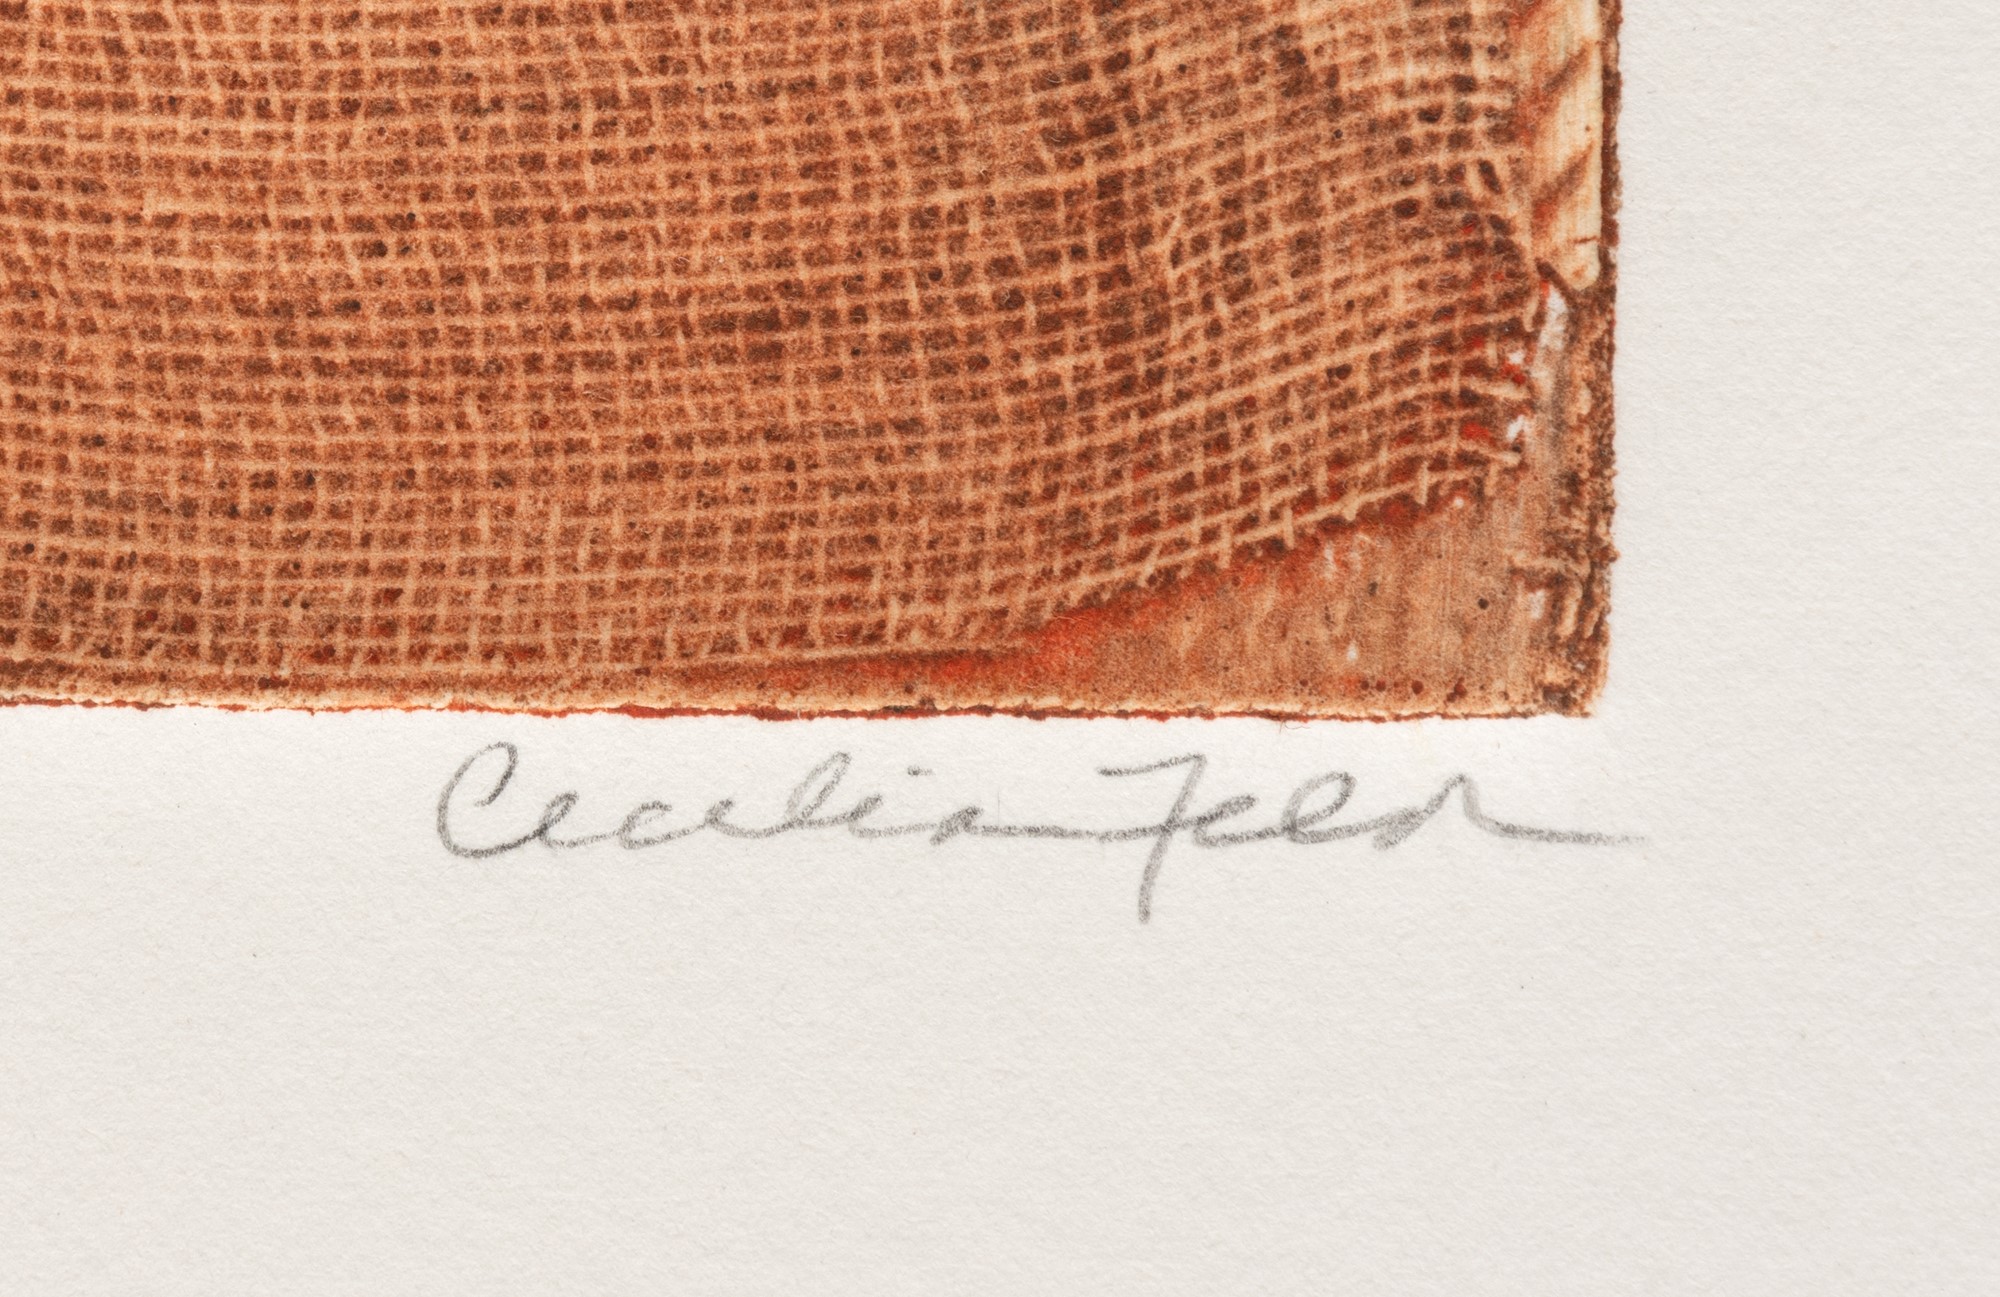 Cecelia Feld